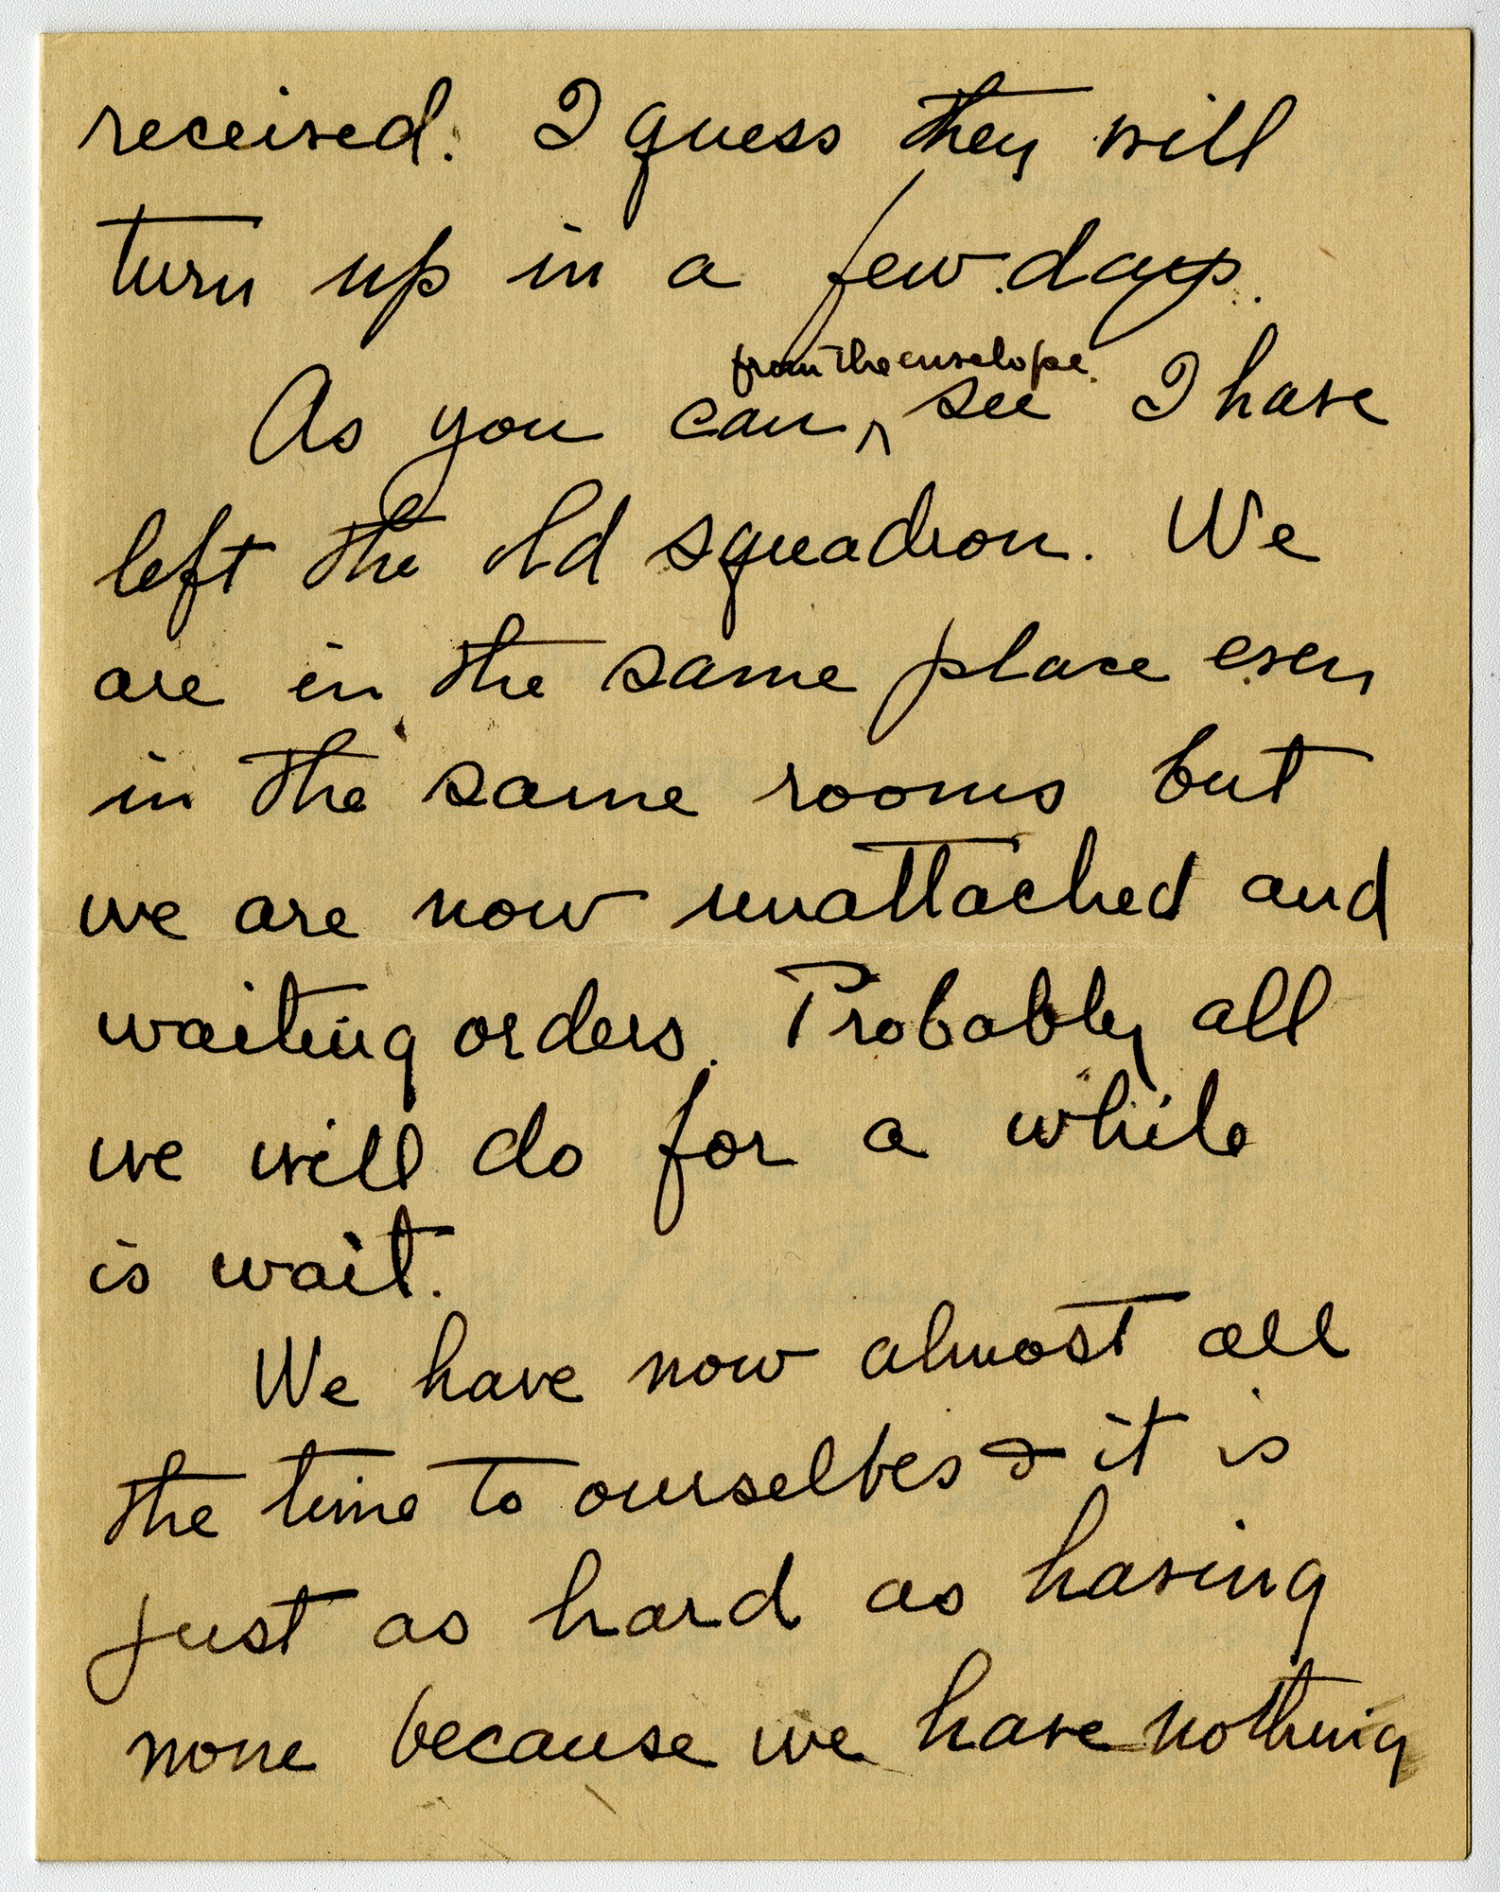 received. I guess they will
turn up in a few days.
from the envelope
As you can, see I have
left the old squadron. We
are in the same place even
in the same rooms but
we are now unattached and
waiting orders. Probably all
we will do for a while
is wait.
We have now almost all
the time to ourselves & it is
just as hard as having
none because we have nothing